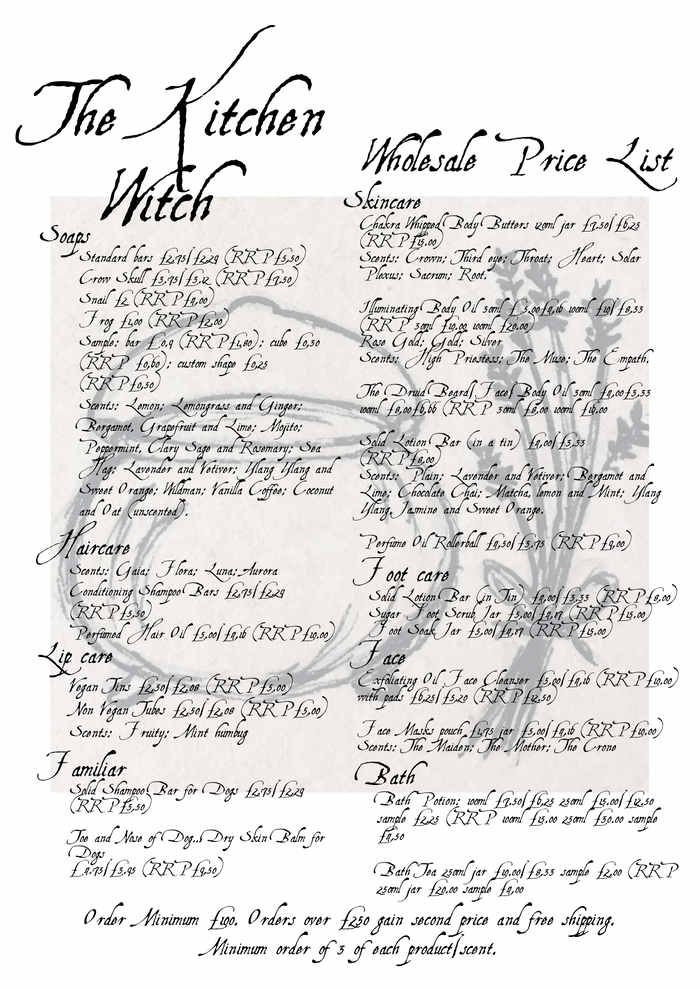 The Kitchen
Witch
Wholesale Price List
Soaps
Standard bars £2.75/£2.29 (RRP £5,50)
Crow Skull £3.75/£3,12 (RRP £7,50)
Snail £2 (RRP £4,00)
Frog £1,00 (RRP £2,00)
Sample: bar £0,9 (RRP £1,80); cube £0,30
(RRP £0,60); custom shape £0,25
(RRP £0,50)
Scents: Lemon; Lemongrass and Ginger;
Bergamot, Grapefruit and Lime; Mojito;
Peppermint, Clary Sage and Rosemary; Sea
Hag; Lavender and Vetiver; Ylang Ylang and
Sweet Orange; Wildman; Vanilla Coffee; Coconut
and Oat (unscented).
Haircare
Scents: Gaia; Flora; Luna; Aurora
Conditioning Shampoo Bars £2.75/£2.29
(RRP £5,50)
Perfumed Hair Oil £5,00/£4,16 (RRP £10,00)
Lip care
Vegan Tins £2,50/£2,08 (RRP £5,00)
Non Vegan Tubes £2,50/£2,08 (RRP £5,00)
Scents: Fruity; Mint humbug
Familiar
Solid Shampoo Bar for Dogs £2.75/£2.29
(RRP £5,50)
Toe and Nose of Dog... Dry Skin Balm for
Dogs
£4.75/£3.95 (RRP £9,50)
Skincare
Chakra Whipped Body Butters 120ml jar £7.50/£6.25
(RRP £15.00)
Scents: Crown; Third eye; Throat; Heart; Solar
Plexus; Sacrum; Root.
Illuminating Body Oil 30ml £5,00/4,16 100ml £10/£8,33
(RRP 30ml £10,00 100ml £20,00)
Rose Gold; Gold; Silver
Scents: High Priestess; The Muse; The Empath.
The Druid Beard/Face/Body Oil 30ml £4,00/3,33
100ml £8,00/6,66 (RRP 30ml £8,00 100ml £16,00
Solid Lotion Bar (in a tin) £4,00/3,33
(RRP £8,00)
Scents: Plain; Lavender and Vetiver; Bergamot and
Lime; Chocolate Chai; Matcha, lemon and Mint; Ylang
Ylang, Jasmine and Sweet Orange.
Perfume Oil Rollerball £4,50/£3.75 (RRP £9,00)
Foot care
Solid Lotion Bar (in Tin) £4,00/3,33 (RRP £8,00)
Sugar Foot Scrub Jar £5,00/£4,17 (RRP £15,00)
Foot Soak Jar £5,00/£4,17 (RRP £15,00)
Face
Exfoliating Oil Face Cleanser £5,00/£4,16 (RRP £10,00)
with pads £6.25/£5.20 (RRP £12,50)
Face Masks pouch £5,00/£4,16 (RRP £10,00)
Scents: The Maiden; The Mother; The Crone
Bath
Bath Potion; 100ml £7,50/£6,25 250ml £15,00/£12,50
sample £2.25 (RRP 100ml £15.00 250ml £30.00 sample
£4,50
Bath Tea 250ml jar £10,00/£8,33 sample £2,00 (RRP
250ml jar £20.00 sample £4,00
Order Minimum £190. Orders over £250 gain second price and free shipping.
Minimum order of 3 of each product/scent.